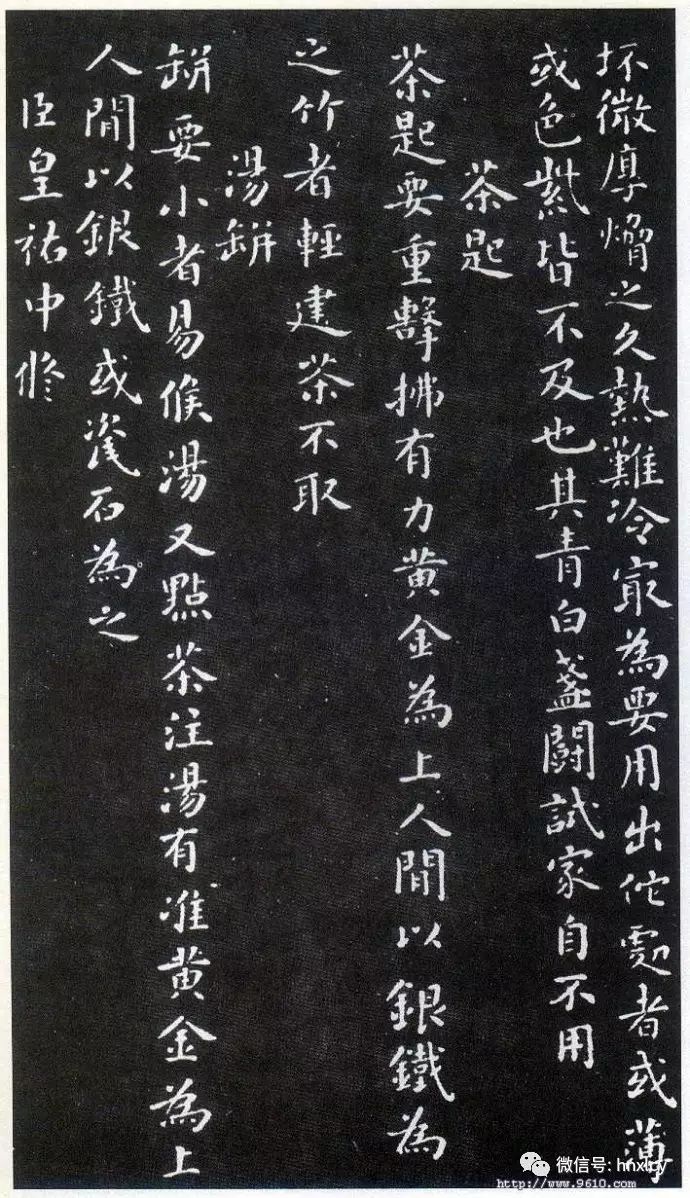 坯微厚熁之久熱難冷㝡為要用出佗處者或薄
或色紫皆不及也其青白盞鬪試家自不用
茶匙
茶匙要重擊拂有力黄金為上人間以銀鐵為
之竹者輕建茶不取
湯缾
缾要小者易候湯又點茶注湯有准黄金為上
人間以銀鐵或瓷石為之
臣皇祐中修
微信号: hnxlcy
http://www.9610.com